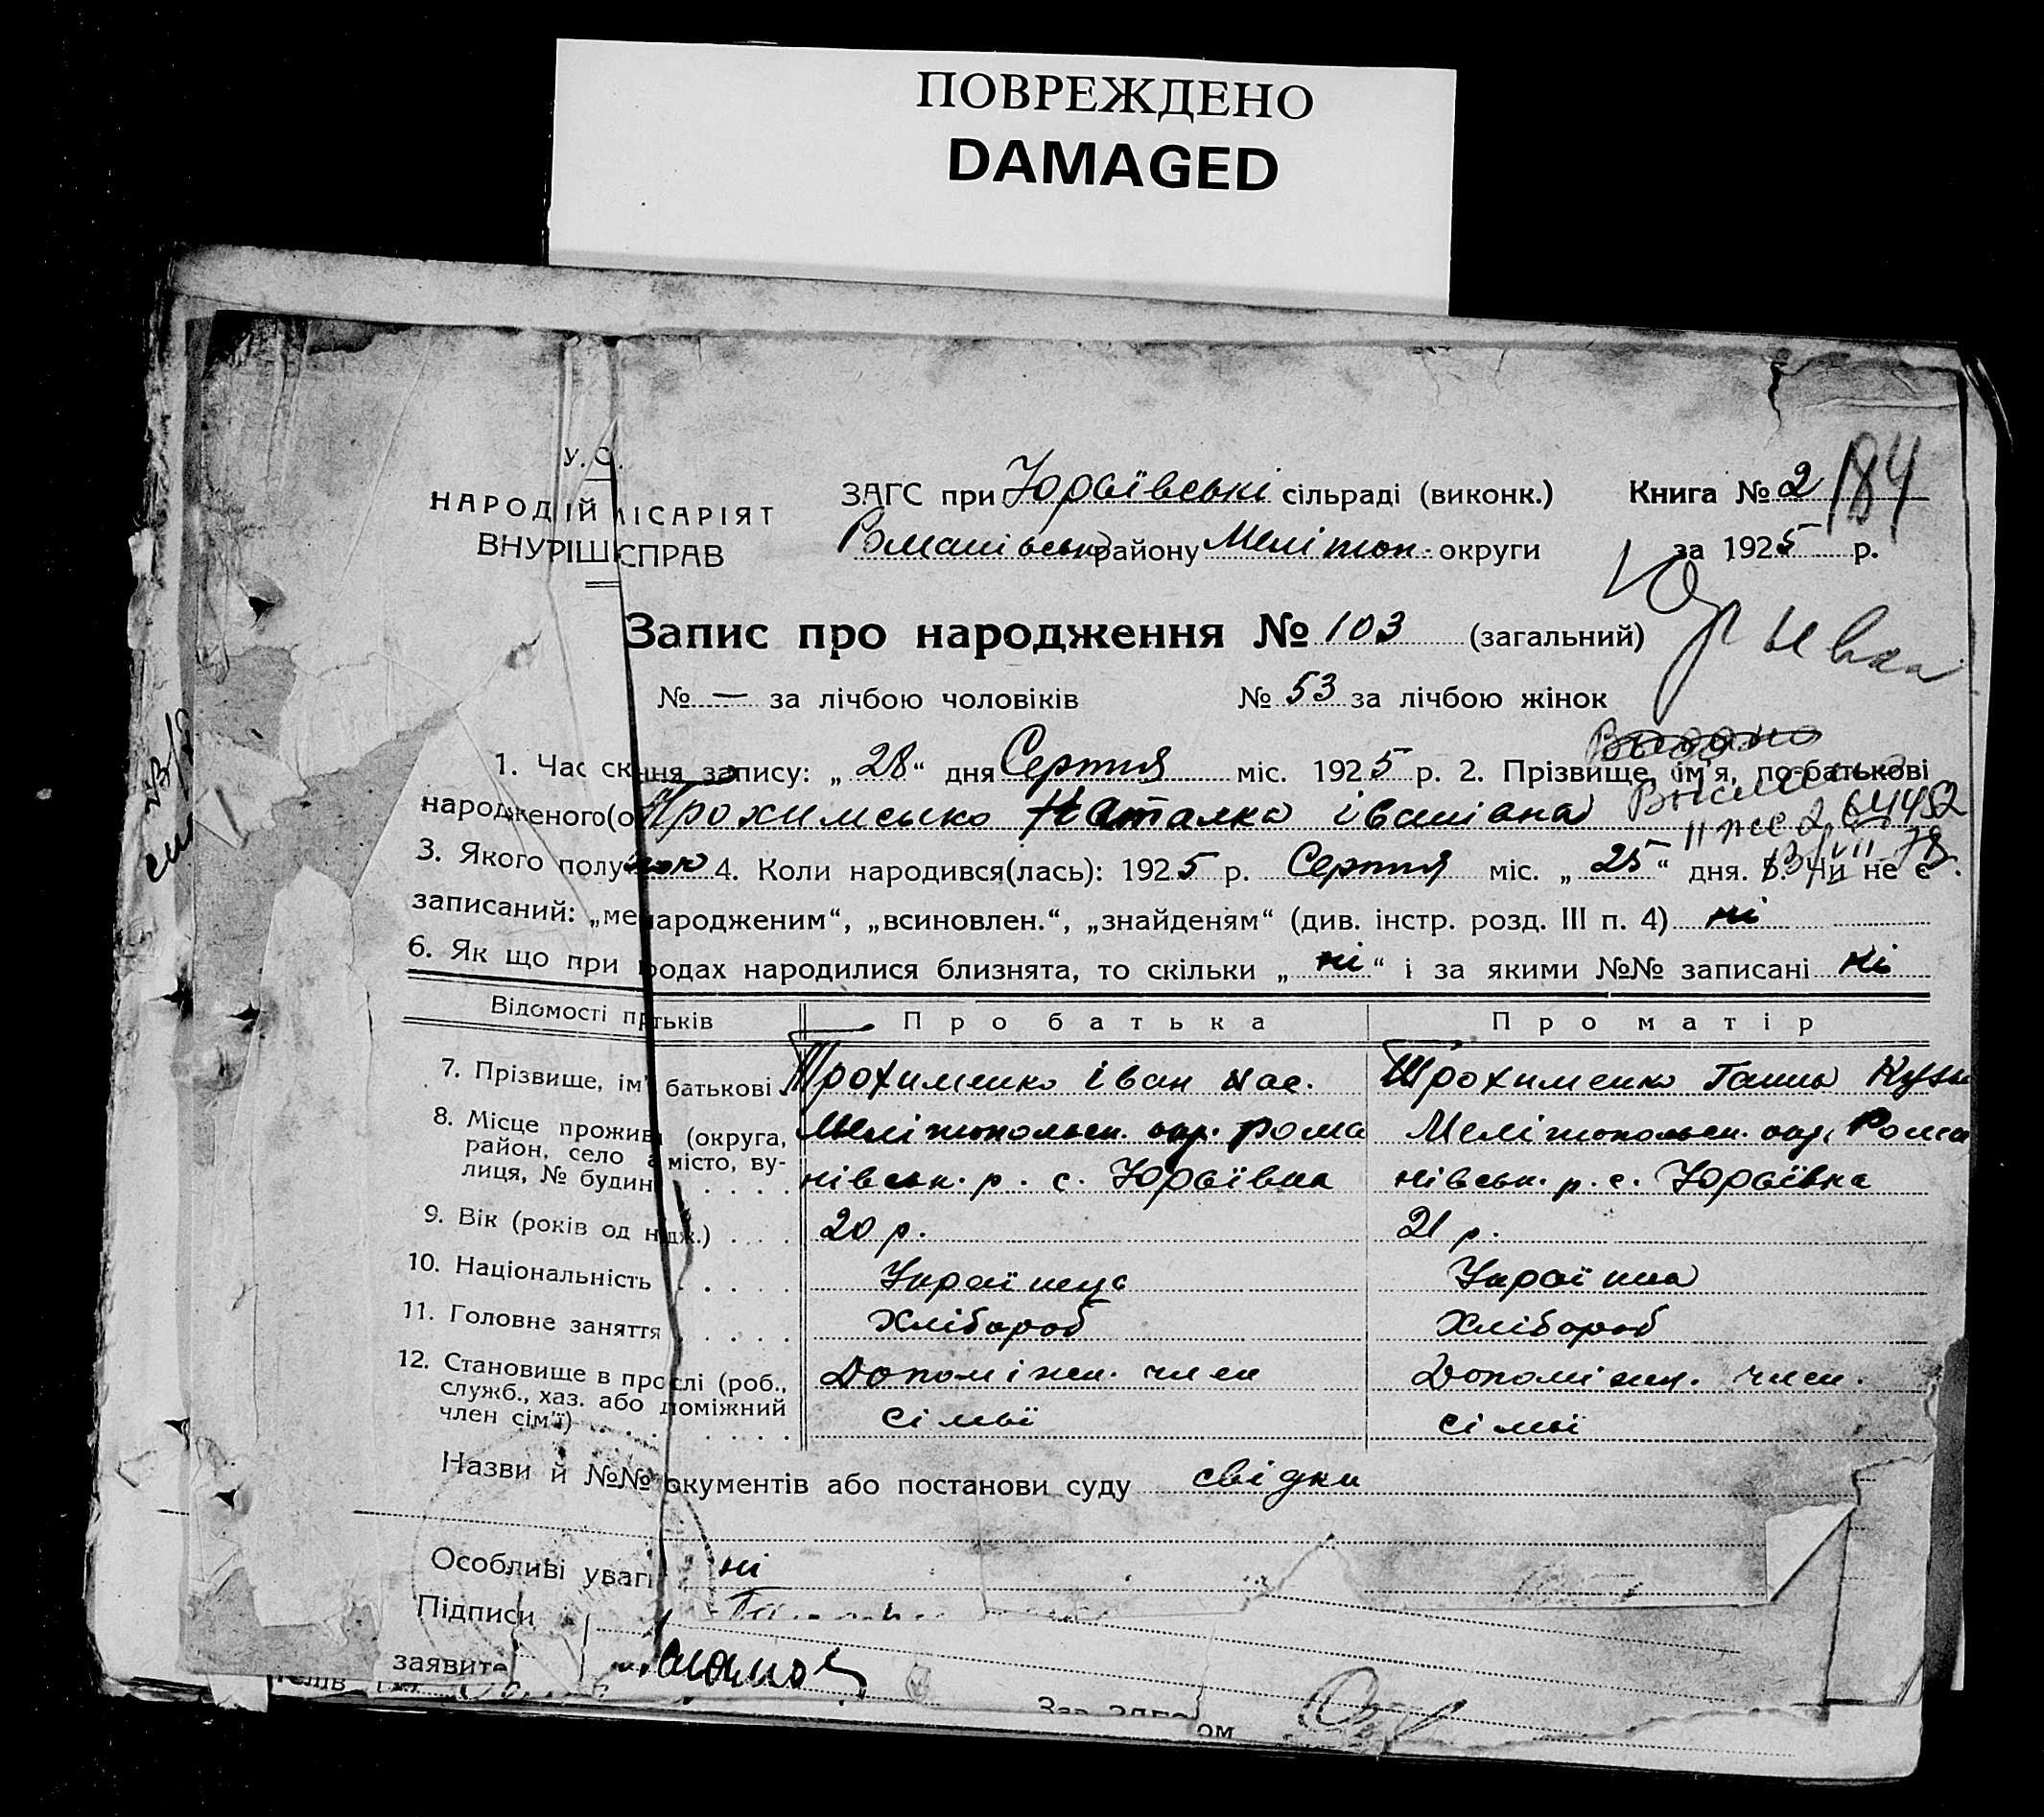 ПОВРЕЖДЕНО
DAMAGED
У. С.
НАРОД ІЙ ІСАРІЯТ
ВНУРІШ СПРАВ
ЗАГС при Юрʼївські сільраді (виконк.)
району Мелітоп. округи
Книга № 2
184
за 1925 р.
Запис про народження № 103 (загальний)
№ — за лічбою чоловіків № 53 за лічбою жінок
1. Час ск ння запису: „28“ дня Серпня міс. 1925 р. 2. Прізвище, ім'я, по-батькові
народженого(о Трохименко Наталка іванівна
3. Якого полу жін 4. Коли народився(лась): 1925 р. Серпня міс. „25“ дня. 5. Чи не є
записаний: „ме народженим“, „всиновлен.“, „знайденям“ (див. інстр. розд. III п. 4) ні
6. Як що при родах народилися близнята, то скільки „ні“ і за якими №№ записані ні
Відомості п тьків Про батька Про матір
7. Прізвище, ім' батькові Трохименко іван Трохименко Ганна Кузь
8. Місце прожив (округа, Мелітопольськ. окр. Рома Мелітопольськ. окр. Рома
район, село а місто, ву- нівськ. р. с. Юрʼївка нівськ. р. с. Юрʼївка
лиця, № будин
9. Вік (років од н дж.) 20 р. 21 р.
10. Національність Українець Українка
11. Головне заняття Хлібороб Хлібороб
12. Становище в про слі (роб., Допоміжн. член Допоміжн. член.
служб., хаз. або поміжний сімьї сімьї
член сім'ї)
Назви й №№ окументів або постанови суду свідки
Особливі уваг ні
Підписи
заявите
Зав. ЗАГС ом